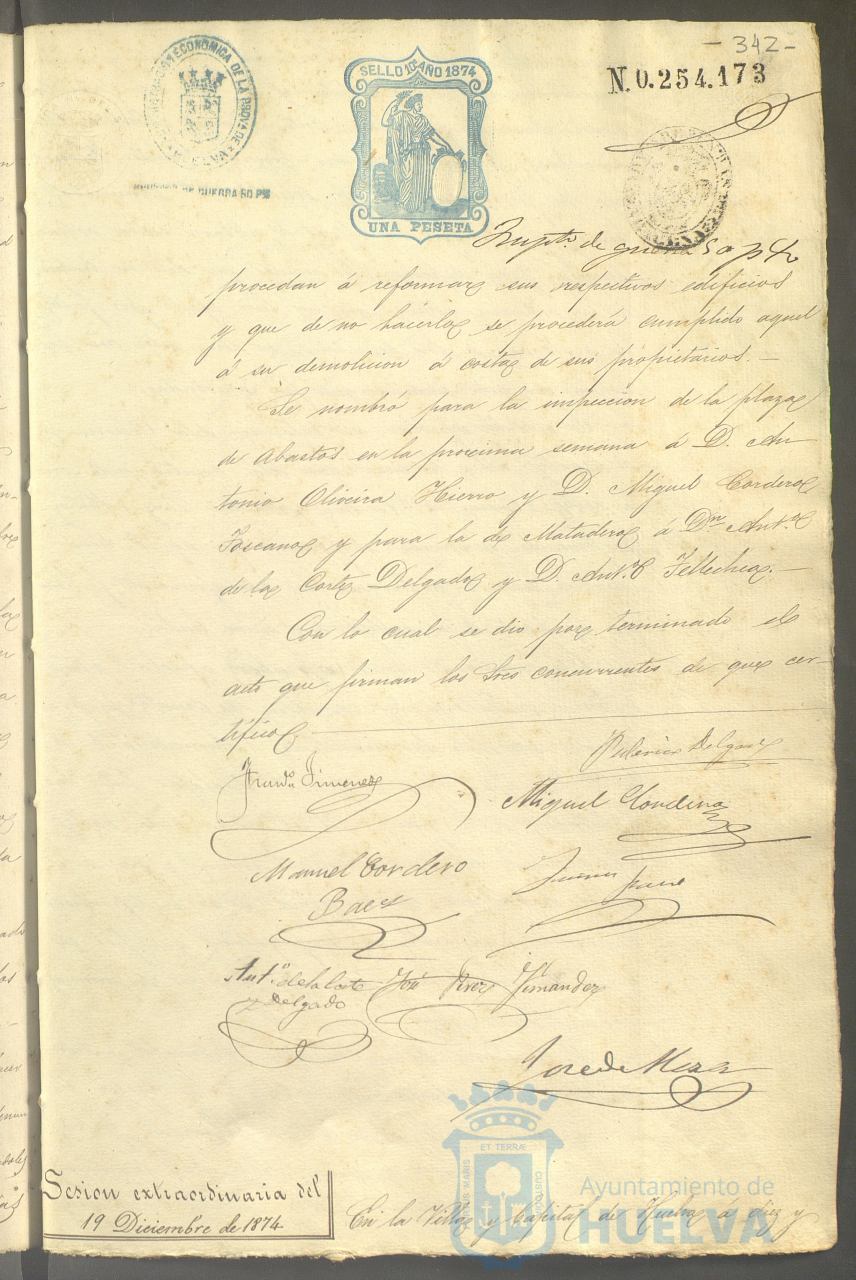 - 342 -
N. 0.254.173
ADMINISTRACION ECONOMICA DE LA PROVA DE HUELVA
IMPUESTO DE GUERRA 50 PS
SELLO 10º AÑO 1874
UNA PESETA
Impto. de guerra 50 p
procedan á reformar sus respectivos edificios
y que de no hacerlo se procederá cumplido aquel
á su demolicion á costa de sus propietarios.—
Se nombró para la inspeccion de la plaza
de Abastos en la procsima semana á D. An-
tonio Oliveira Hierro y D. Miguel Cordero
Toscano y para la de Matadero á Dn Anto.
de la Corte Delgado y D. Anto. Tellechea.—
Con lo cual se dio por terminado el
acto que firman los Sres concurrentes de que cer-
tifico
Franco. Jimenez
Federico Delgado
Miguel
Manuel Cordero
Baez
Anto. de la Corte
y Delgado
José Perez Fernandez
Jose de Mora
Sesion extraordinaria del
19 Diciembre de 1874
En la Villa y Capital de Huelva á diez y
ET TERRÆ
PORTUS MARIS
CUSTODIA
Ayuntamiento de
HUELVA